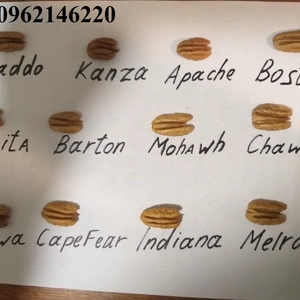 0962146220
addo Kanza Apache Bost
ita Barton Mohawh Chaw
wa CapeFear Indiana Melro